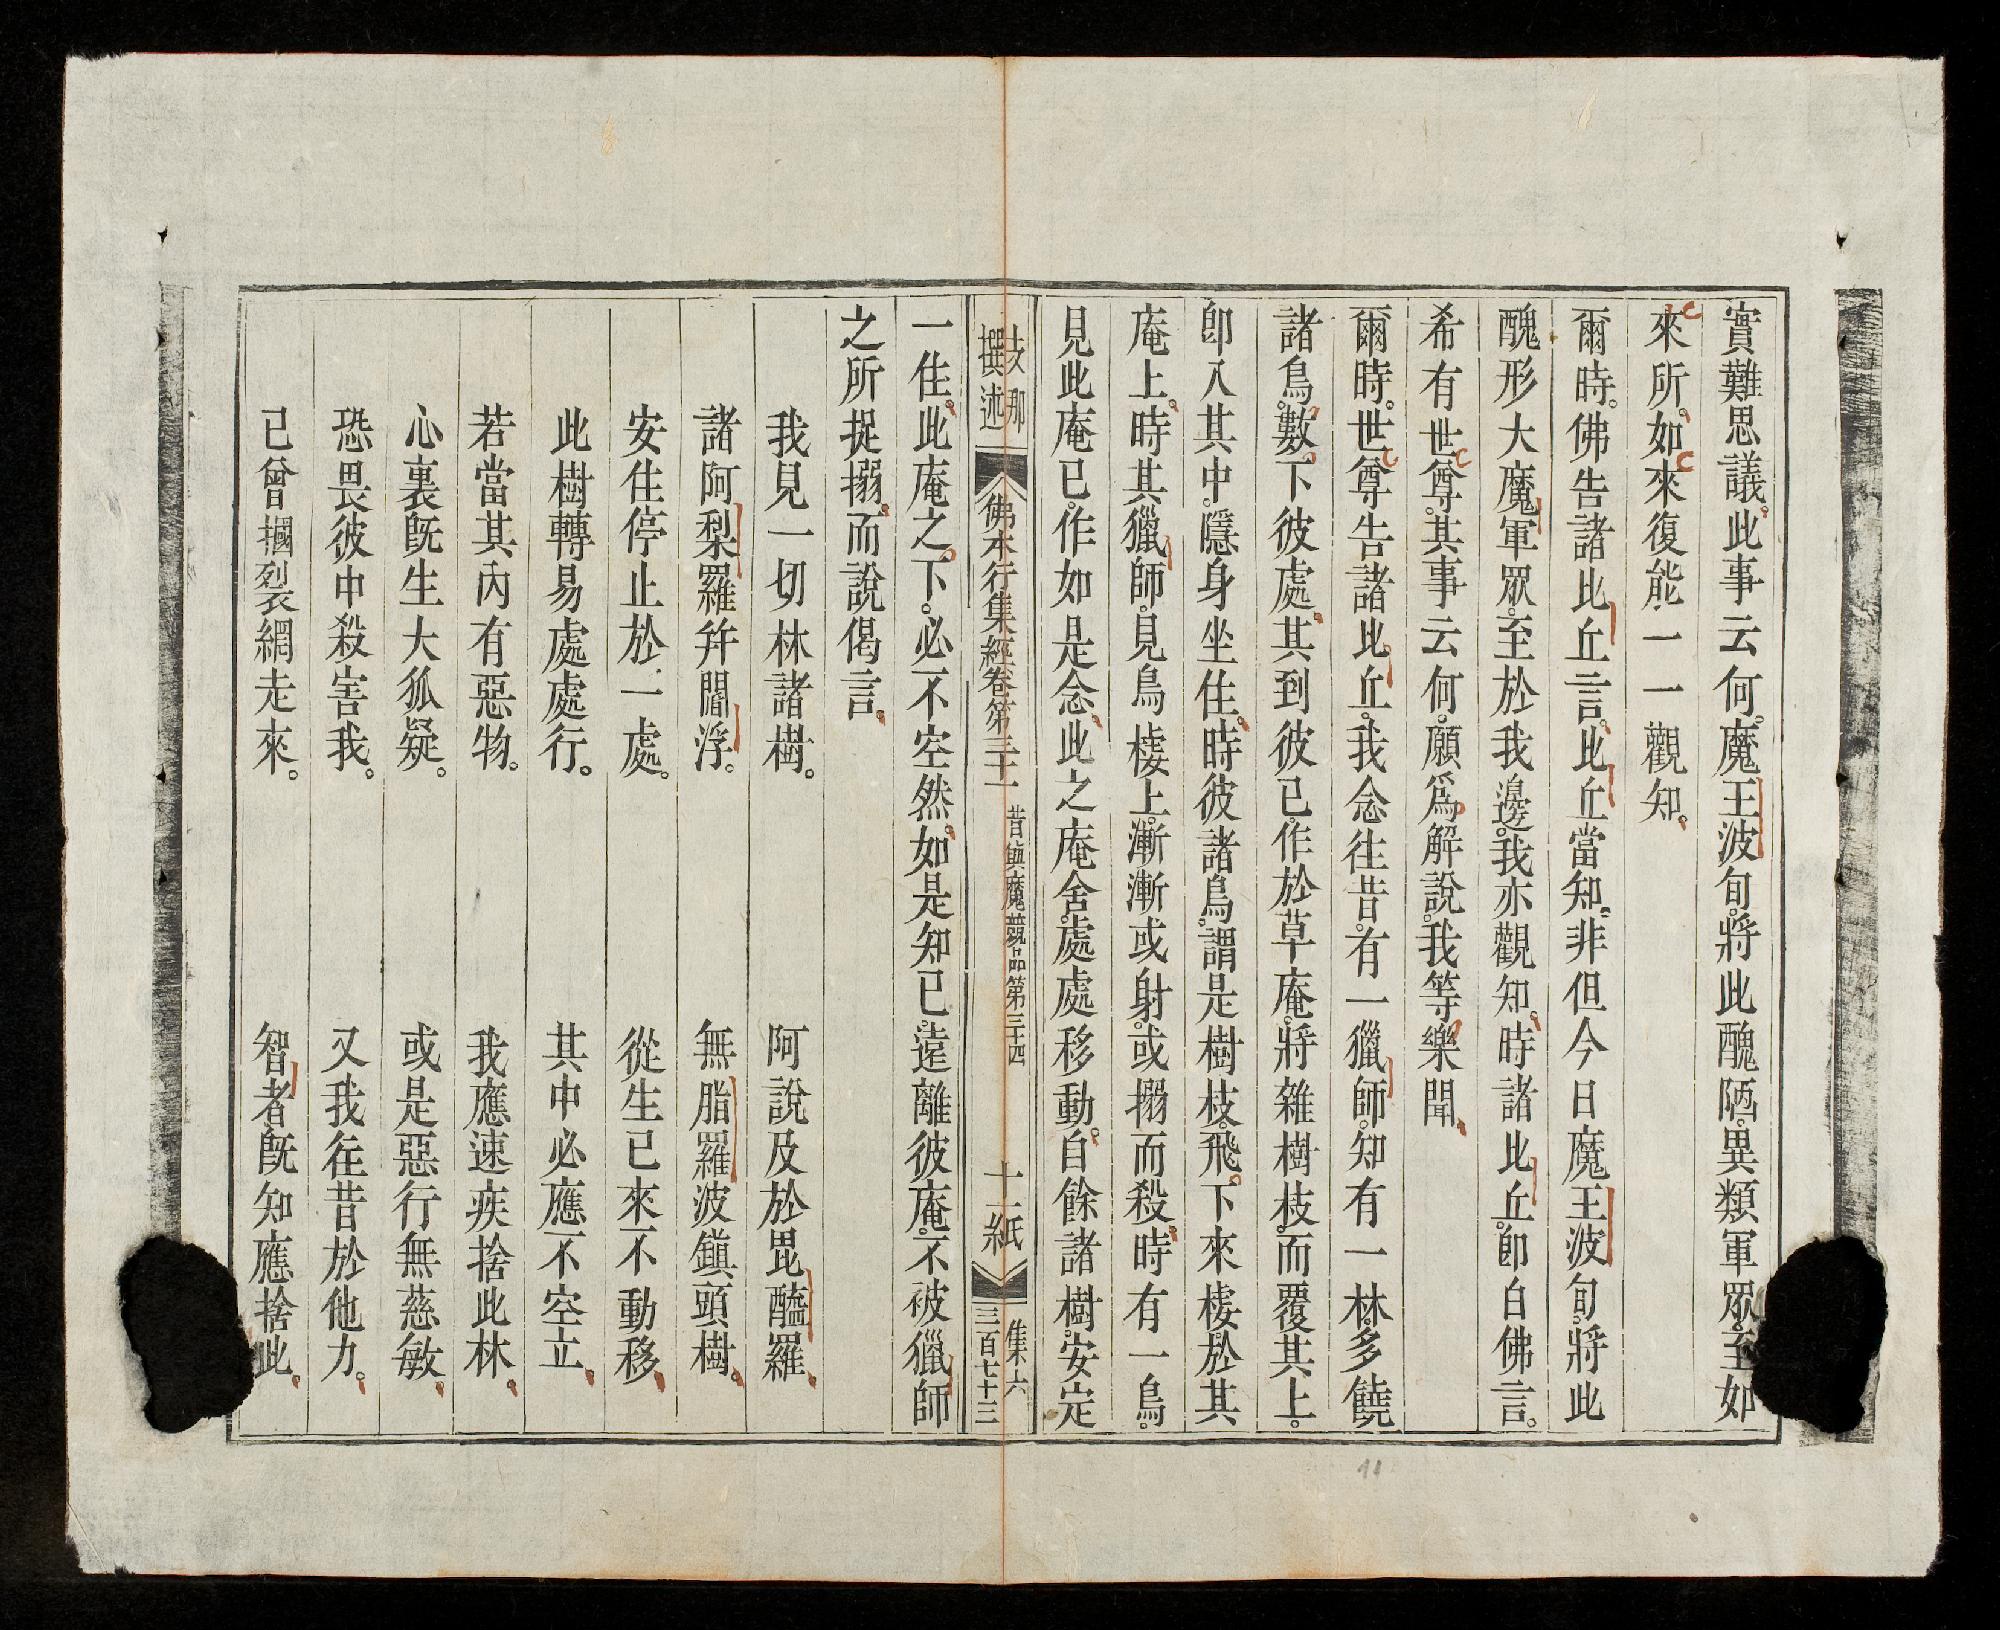 實難思議。此事云何。魔王波旬。將此醜陋。異類軍眾。至如
來所。如來復能一一觀知。
爾時。佛告諸比丘言。比丘當知。非但今日魔王波旬。將此
醜形大魔軍眾。至於我邊。我亦觀知。時諸比丘。即白佛言。
希有世尊。其事云何。願為解說。我等樂聞。
爾時。世尊告諸比丘。我念往昔。有一獵師。知有一林。多饒
諸鳥。數下彼處。其到彼已。作於草庵。將雜樹枝。而覆其上。
即入其中。隱身坐住。時彼諸鳥。謂是樹枝。飛下來棲。於其
庵上。時其獵師。見鳥棲上。漸漸或射。或搦而殺。時有一鳥。
見此庵已。作如是念。此之庵舍。處處移動。自餘諸樹。安定
支那
撰述
佛本行集經卷第三十一
昔與魔競品第三十四
十二紙
集六
三百七十三
一住。此庵之下。必不空然。如是知已。遠離彼庵。不被獵師
之所捉搦。而說偈言。
我見一切林諸樹。 阿說及於毘醯羅。
諸阿梨羅并閻浮。 無脂羅波鎮頭樹。
安住停止於一處。 從生已來不動移。
此樹轉易處處行。 其中必應不空立。
若當其內有惡物。 我應速疾捨此林。
心裏既生大狐疑。 或是惡行無慈敏。
恐畏彼中殺害我。 又我在昔於他力。
已曾摑裂網走來。 智者既知應捨此。